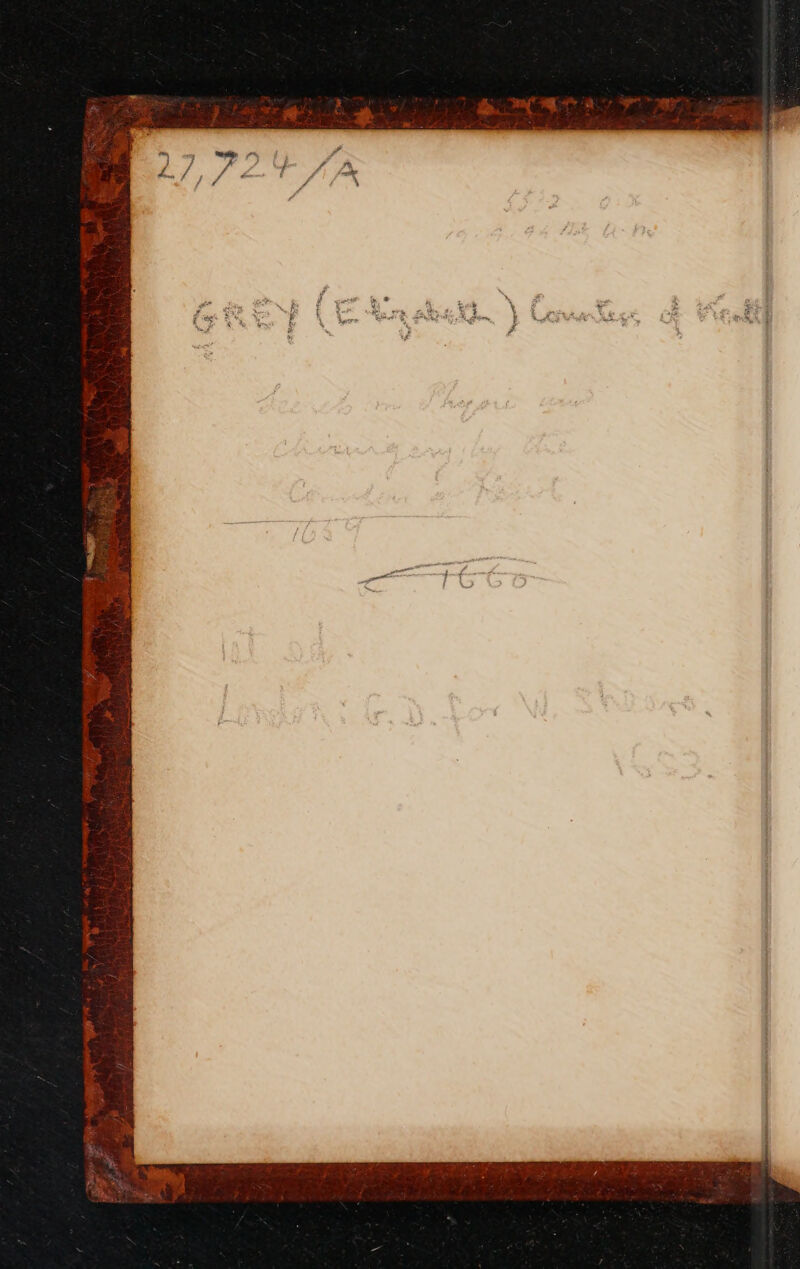 27,724/A
GREY (Elizabeth) Countess of Kent
Secrets in Physick and
Chirurgery, by the
Countess of Kent
1659
1660
1st ed.
London: G.D. for W. Shears.
1653.